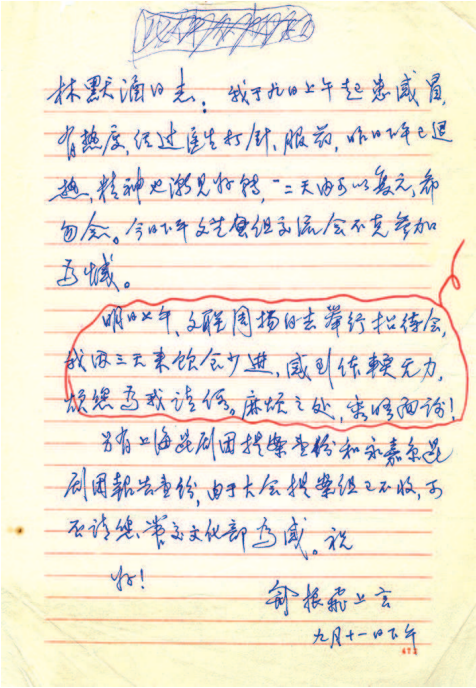 林默涵同志：我于九日上午起患感冒，
有热度，经过医生打针、服药，昨日下午已退
热，精神也渐见好转，一二天内可以复元，希
勿念。今日下午文艺会组交流会不克参加
为憾。
明日上午，文联周扬同志举行招待会，
我因三天来饮食少进，感到体软无力，
烦您为我请假。麻烦之处，容后面谈！
另有上海昆剧团提案壹份和永嘉京昆
剧团报告壹份，由于大会提案组已不收，可
否请您带交文化部为感。祝
好！
俞振飞上言
九月十一日下午